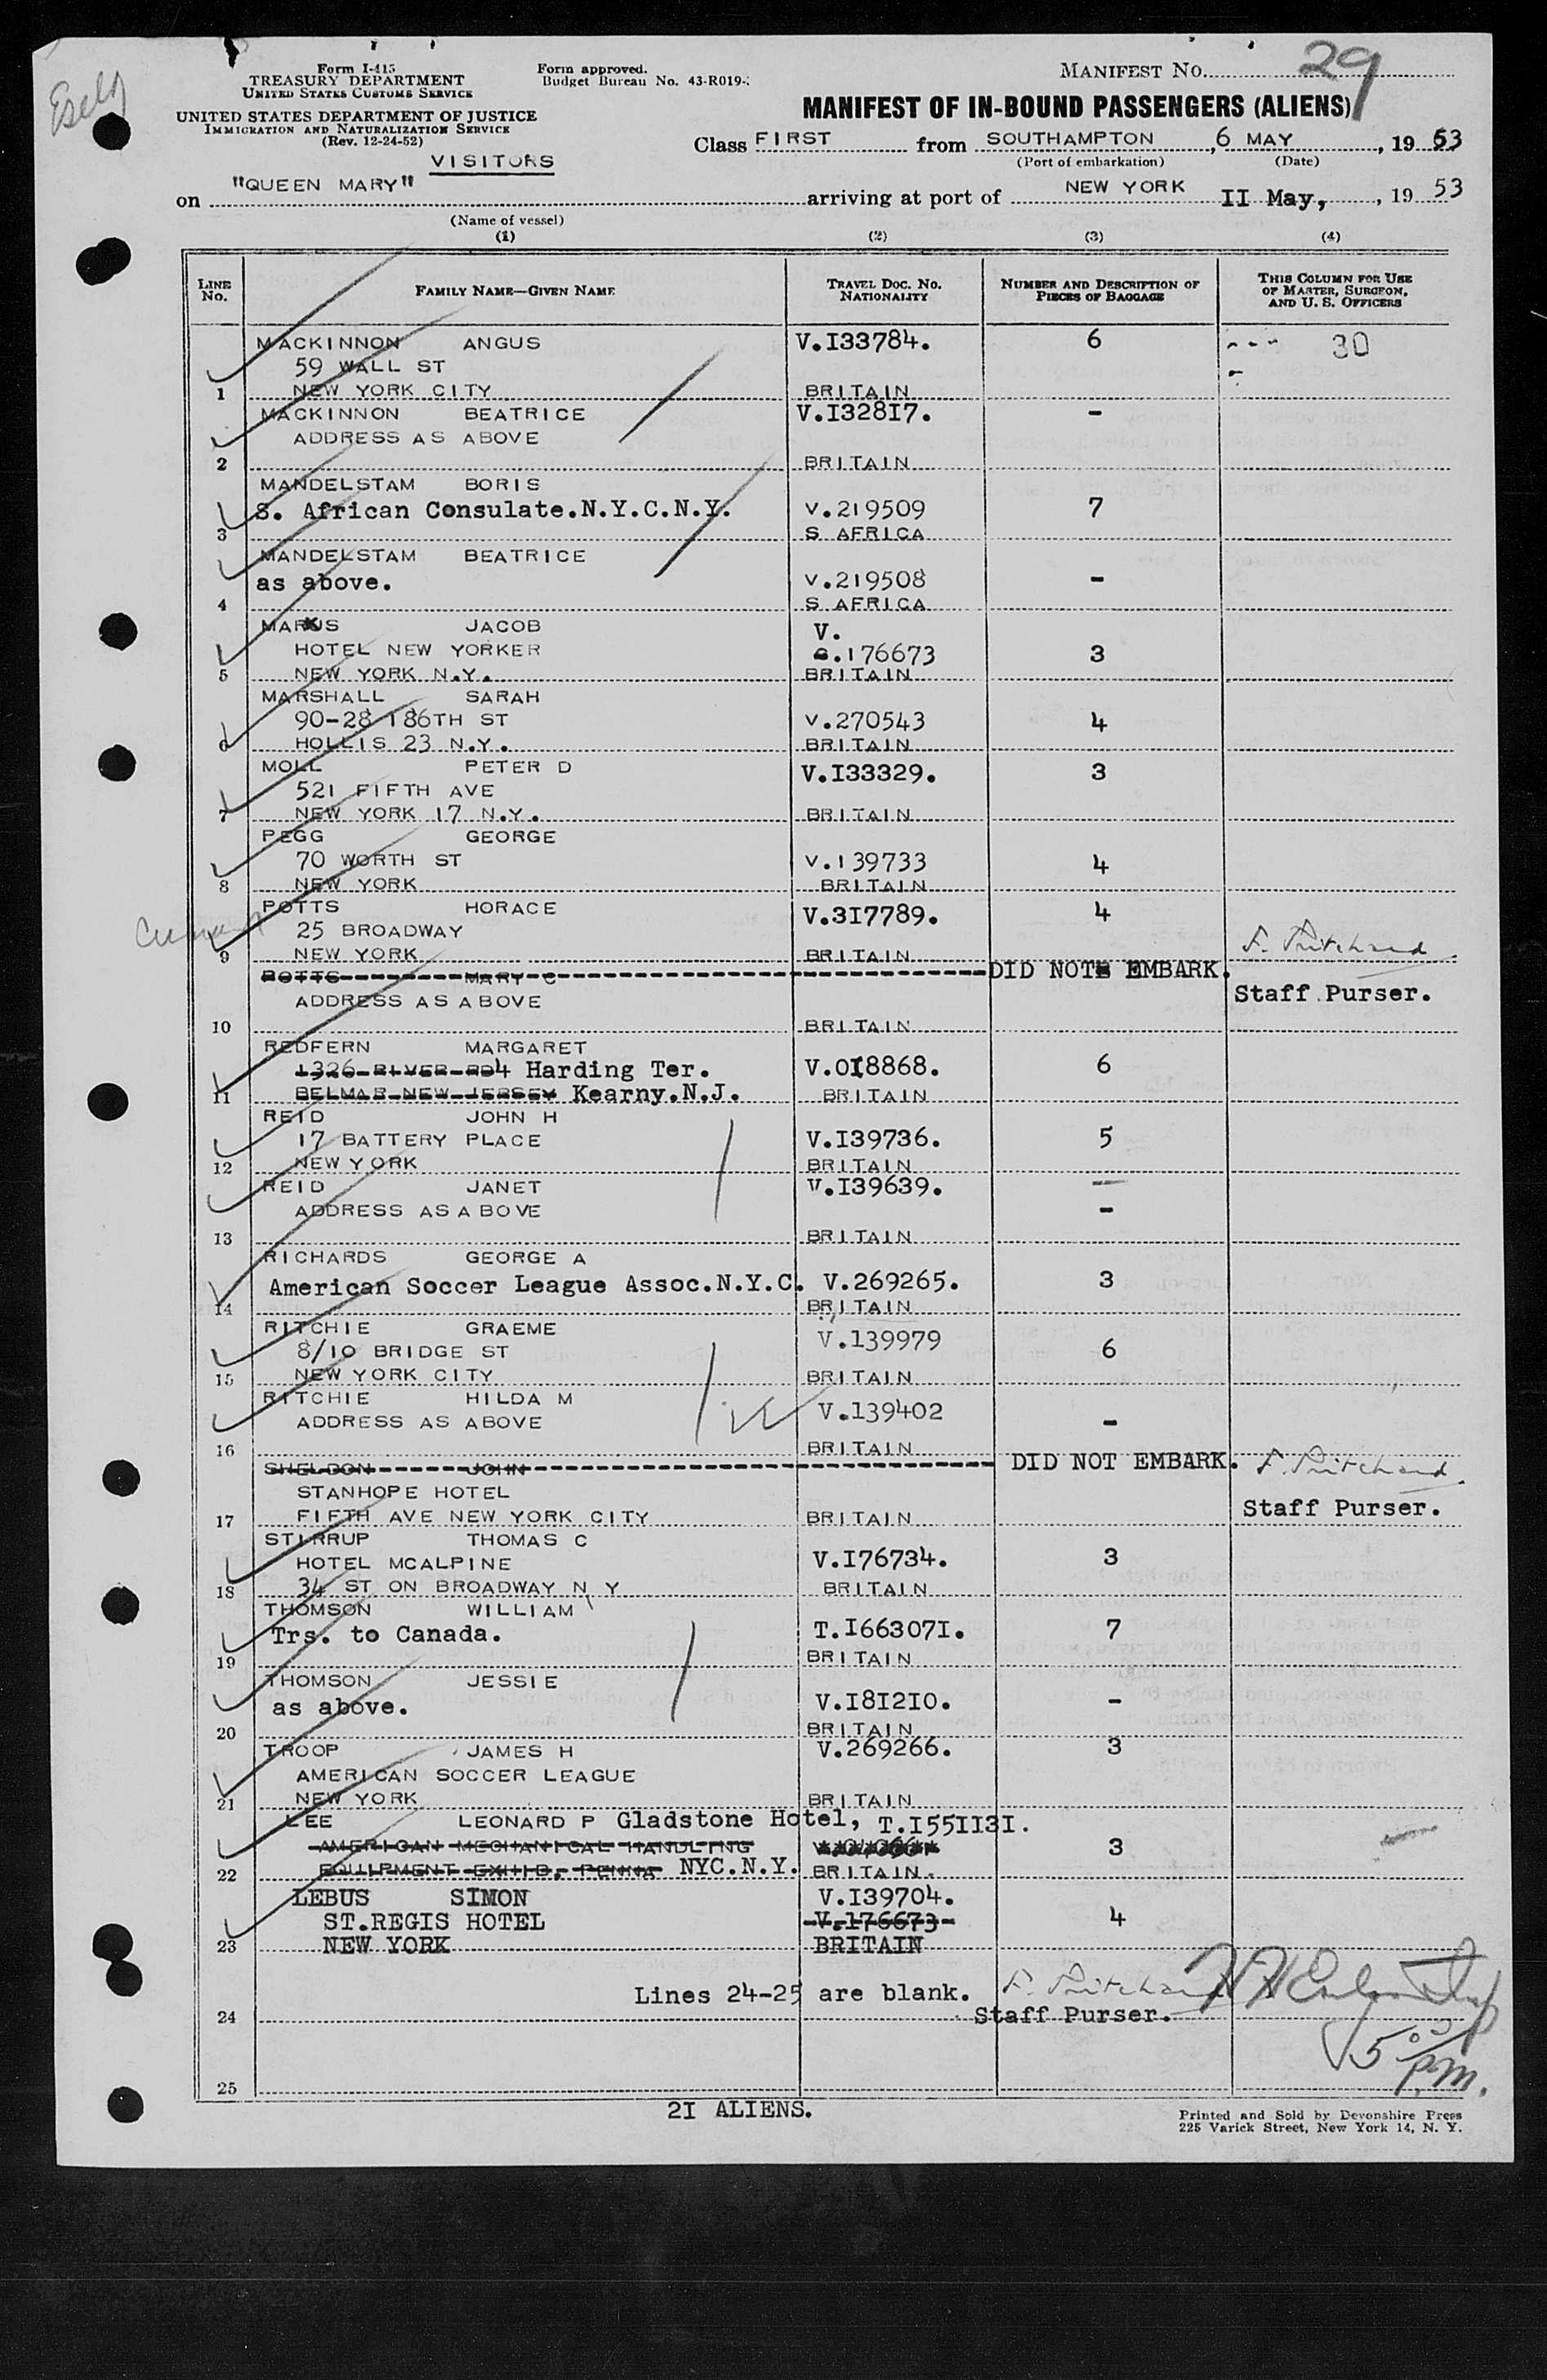 Form I-415
TREASURY DEPARTMENT
UNITED STATES CUSTOMS SERVICE
UNITED STATES DEPARTMENT OF JUSTICE
IMMIGRATION AND NATURALIZATION SERVICE
(Rev. 12-24-52)
Form approved.
Budget Bureau No. 43-R019-
MANIFEST NO. 29
MANIFEST OF IN-BOUND PASSENGERS (ALIENS)
VISITORS
Class FIRST from SOUTHAMPTON, 6 MAY, 1953
(Port of embarkation) (Date)
on "QUEEN MARY" arriving at port of NEW YORK II May, , 19 53
(Name of vessel)
(1) (2) (3) (4)
LINE No. FAMILY NAME—GIVEN NAME TRAVEL DOC. NO. NATIONALITY NUMBER AND DESCRIPTION OF PIECES OF BAGGAGE THIS COLUMN FOR USE OF MASTER, SURGEON, AND U. S. OFFICERS
MACKINNON ANGUS V.I33784. 6 30
59 WALL ST
1 NEW YORK CITY BRITAIN
MACKINNON BEATRICE V.I328I7. -
ADDRESS AS ABOVE
2 BRITAIN
MANDELSTAM BORIS
S. African Consulate.N.Y.C.N.Y. V.219509 7
3 S AFRICA
MANDELSTAM BEATRICE
as above. V.219508 -
4 S AFRICA
MARKUS JACOB V.
HOTEL NEW YORKER .176673 3
5 NEW YORK N.Y. BRITAIN
MARSHALL SARAH
90-28 186TH ST V.270543 4
6 HOLLIS 23 N.Y. BRITAIN
MOLL PETER D V.I33329. 3
521 FIFTH AVE
7 NEW YORK 17 N.Y. BRITAIN
PEGG GEORGE
70 WORTH ST V.139733 4
8 NEW YORK BRITAIN
POTTS HORACE V.3I7789. 4
25 BROADWAY
9 NEW YORK BRITAIN F. Pritchard
POTTS MARY C DID NOT EMBARK.
ADDRESS AS ABOVE Staff Purser.
10 BRITAIN
REDFERN MARGARET
1326 RIVER RD 4 Harding Ter. V.0I8868. 6
11 BELMAR NEW JERSEY Kearny.N.J. BRITAIN
REID JOHN H
17 BATTERY PLACE V.I39736. 5
12 NEW YORK BRITAIN
REID JANET V.I39639.
ADDRESS AS ABOVE -
13 BRITAIN
RICHARDS GEORGE A
American Soccer League Assoc.N.Y.C. V.269265. 3
14 BRITAIN
RITCHIE GRAEME V.139979
8/10 BRIDGE ST 6
15 NEW YORK CITY BRITAIN
RITCHIE HILDA M V.139402
ADDRESS AS ABOVE -
16 BRITAIN
SHELDON JOHN DID NOT EMBARK. F. Pritchard
STANHOPE HOTEL Staff Purser.
17 FIFTH AVE NEW YORK CITY BRITAIN
STIRRUP THOMAS C
HOTEL MCALPINE V.I76734. 3
18 34 ST ON BROADWAY N Y BRITAIN
THOMSON WILLIAM
Trs. to Canada. T.I66307I. 7
19 BRITAIN
THOMSON JESSIE
as above. V.I8I2I0. -
20 BRITAIN
TROOP JAMES H V.269266. 3
AMERICAN SOCCER LEAGUE
21 NEW YORK BRITAIN
LEE LEONARD P Gladstone Hotel, T.I55II3I.
AMERICAN MECHANICAL HANDLING 3
22 EQUIPMENT EXHIB, PENNA NYC.N.Y. BRITAIN.
LEBUS SIMON V.I39704.
ST.REGIS HOTEL V.176673 4
23 NEW YORK BRITAIN
Lines 24-25 are blank. F. Pritchard
24 Staff Purser.
5 00 P.M.
25
2I ALIENS.
Printed and Sold by Devonshire Press
225 Varick Street, New York 14, N. Y.